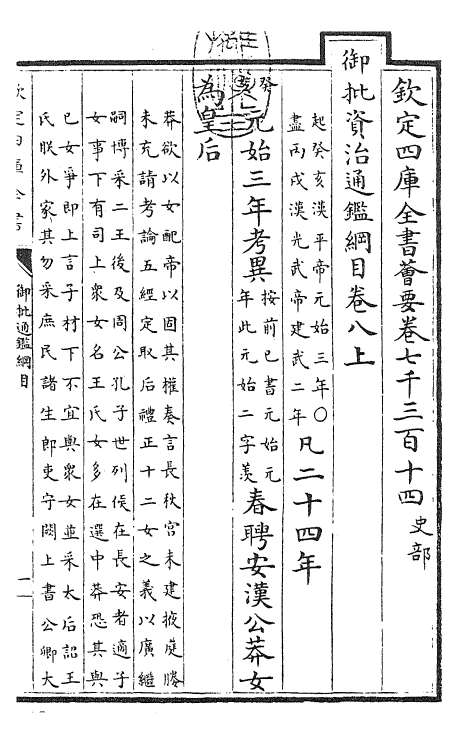 欽定四庫全書薈要卷七千三百十四 史部
御批資治通鑑綱目卷八上
起癸亥漢平帝元始三年〇
盡丙戌漢光武帝建武二年
凡二十四年
癸亥
元始三年考異
按前已書元始元
年此元始二字羨
春聘安漢公莽女
為皇后
莽欲以女配帝以固其權奏言長秋宮未建掖庭媵
未充請考論五經定取后禮正十二女之義以廣繼
嗣博采二王後及周公孔子世列侯在長安者適子
女事下有司上衆女名王氏女多在選中莽恐其與
已女爭即上言子材下不宜與衆女並采太后詔王
氏朕外家其勿采庶民諸生郎吏守闕上書公卿大
欽定四庫全書
御批通鑑綱目
一